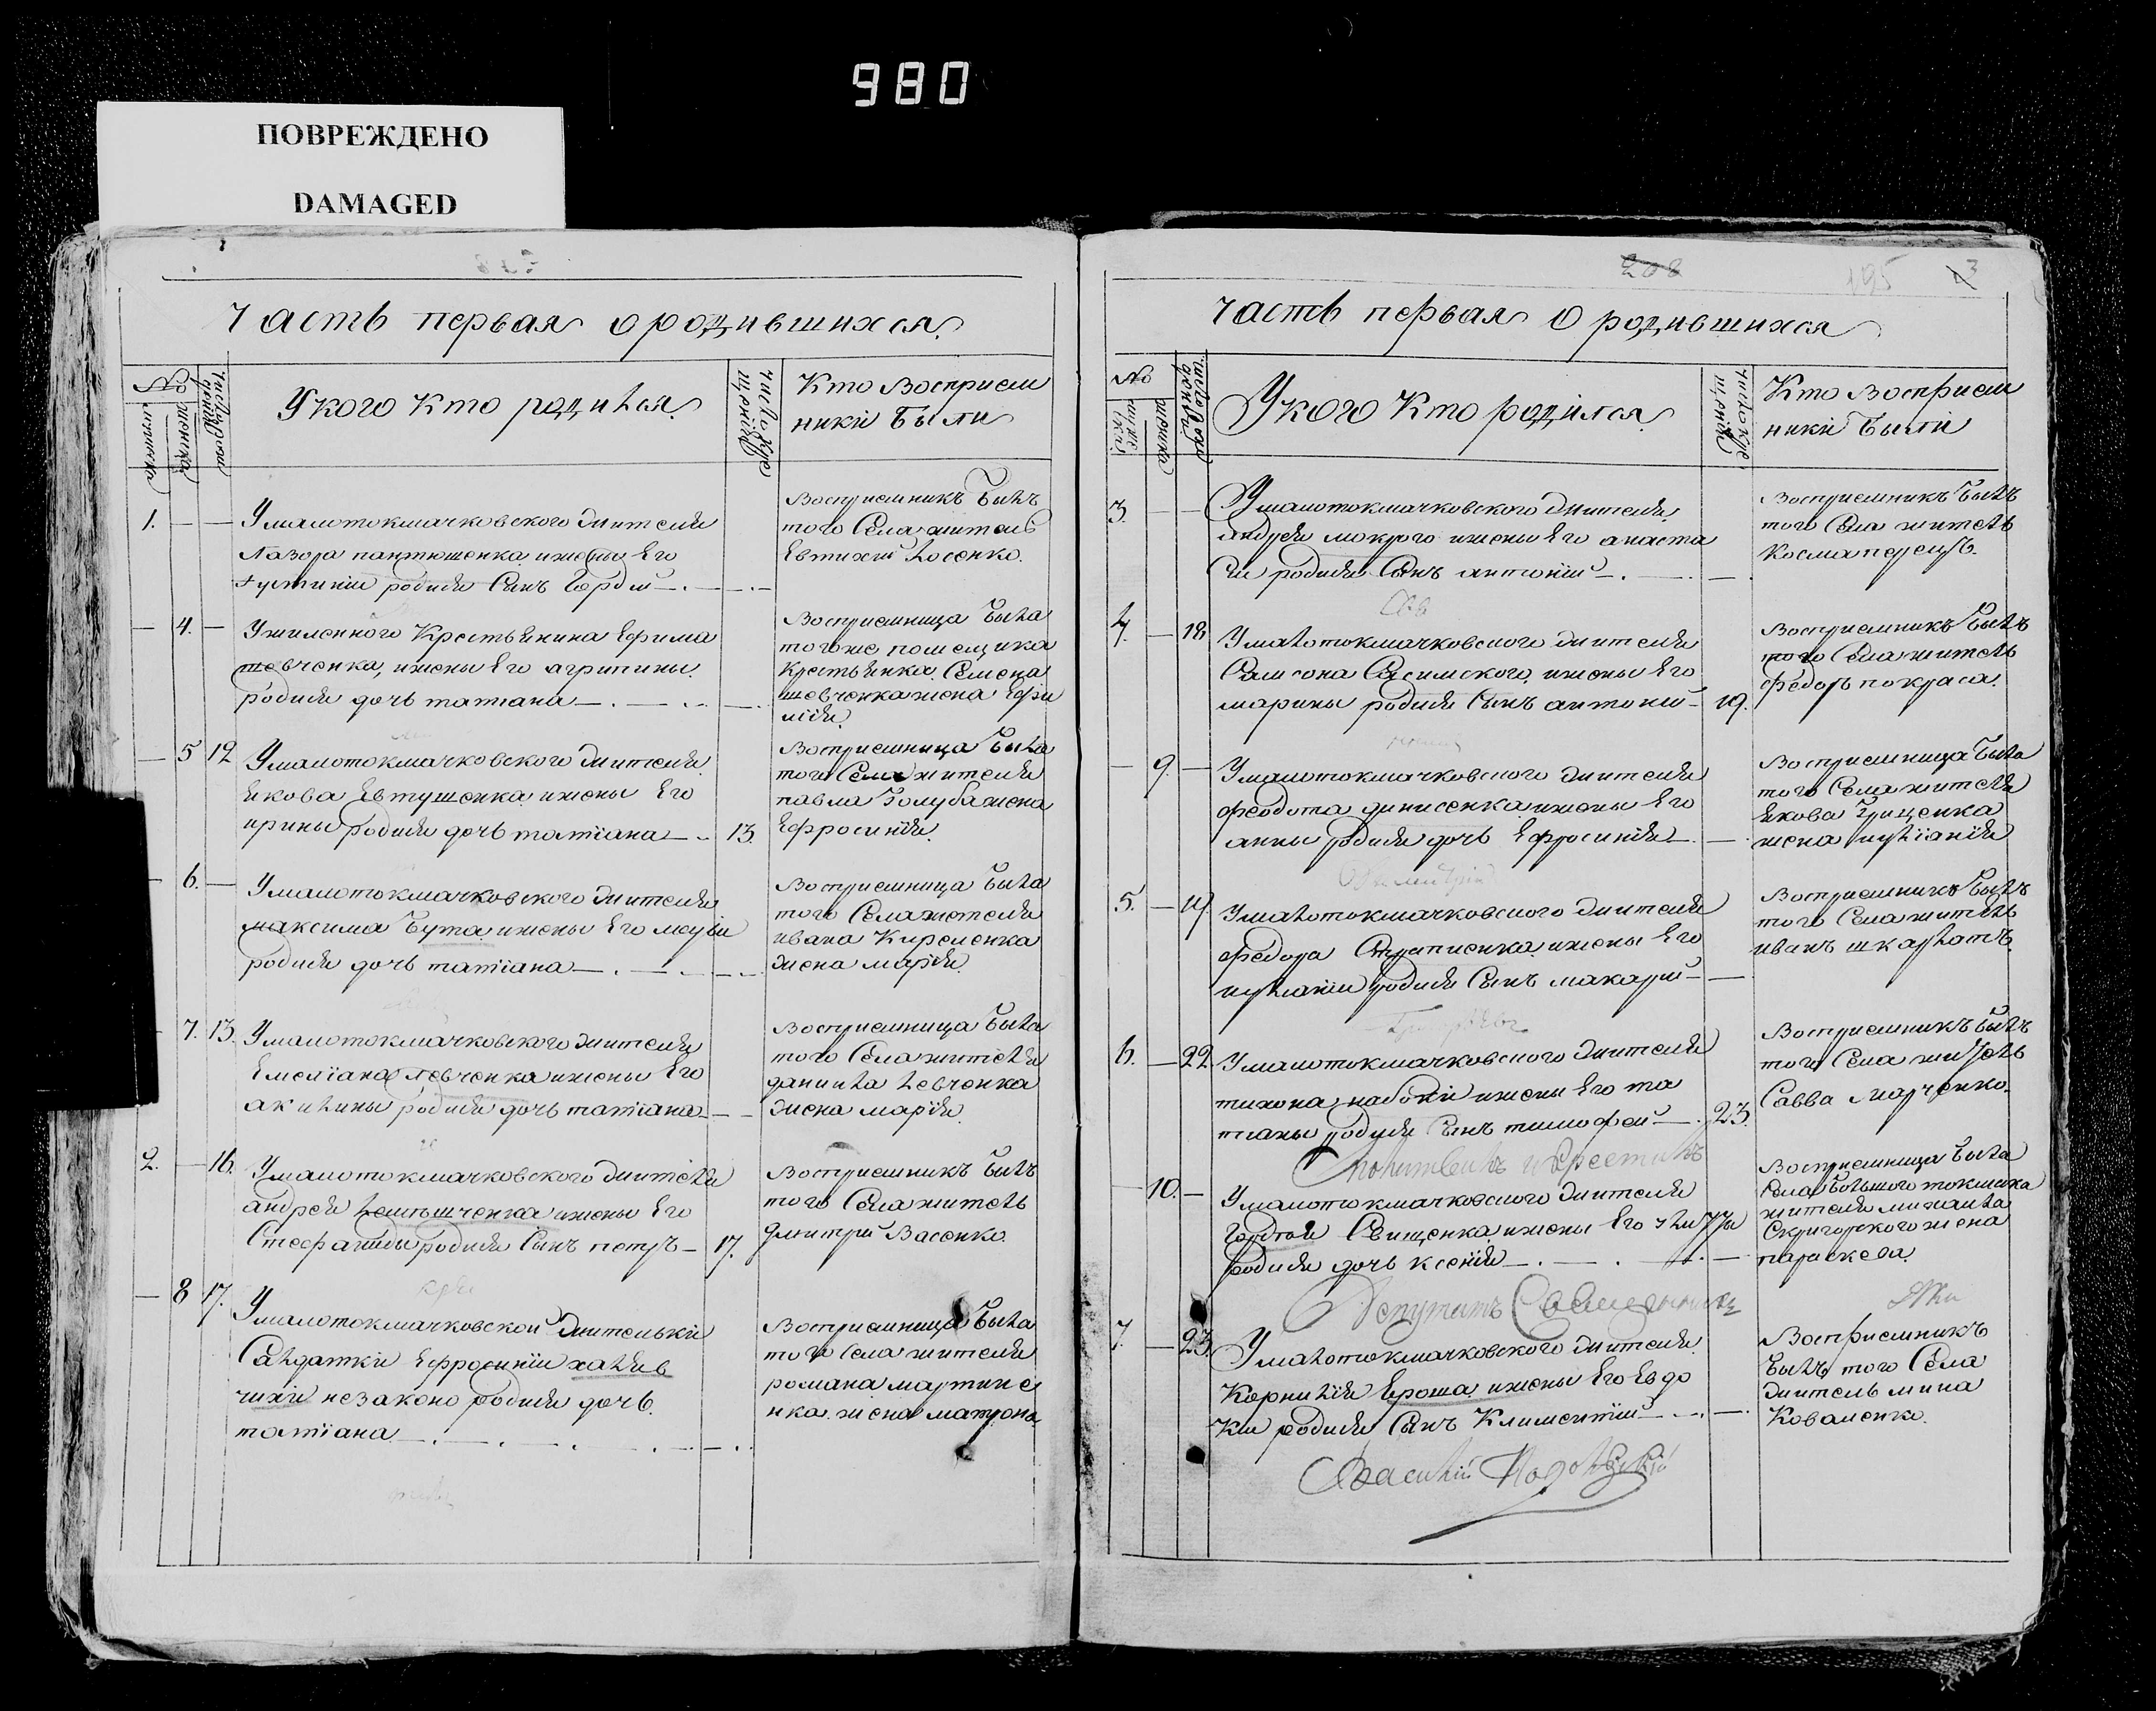 980
ПОВРЕЖДЕНО
DAMAGED
Часть первая о родившихся
№
Число рожденія
мужеска
женска
У кого кто родился
Число крещенія
Кто восприем
ники были
1.
У малотокмачковского жителя
Лазора пантюшенка и жены Его
Густиніи родился Сынъ Гордій
Восприемникъ былъ
того Села житель
Евтихій Лосенко.
4.
крестьянина Ефима
шевченка, и жены Его агрипины
родися дочь татіана
Восприемница была
того же помещика
крестьянка Семена
шевченка жена Ефи
мія
5 12
У малотокмачковского жителя
якова Евтушенка и жены Его
ирины родися дочь татіана
13.
Восприемница была
того Села жителя
павла Голуба жена
Ефросинія
6.
У малотокмачковского жителя
максима Бута и жены Его
родися дочь татіана
Восприемница была
того Села жителя
ивана Киреленка
жена марія
7. 13.
У малотокмачковского жителя
Емеліана левченка и жены Его
акилины родися дочь татіана
Восприемница была
того Села жителя
даниила левченка
жена марія
2. 16.
У малотокмачковского жителя
андрея и жены Его
Стефаниды родися Сынъ петръ
17.
Восприемникъ былъ
того Села житель
Дмитрій Васенко
8 17.
У малотокмачковской жительки
Салдатки Ефросиніи халяв
чихи незаконо родися дочь
татіана
Восприемница была
того Села жителя
романа мартине
нка жена матрона
208
195
3
Часть первая о родившихся
№
Число рожденія
женска
У кого кто родился
Число крещенія
Кто восприем
ники были
3.
У малотокмачковского жителя
андрея мокрого и жены Его анаста
Сіи родися Сынъ антоній
Восприемникъ былъ
того Села житель
Косма перецъ.
4. 18
У малотокмачковского жителя
Самсона и жены Его
марины родися Сынъ антоній
19.
Восприемникъ былъ
того Села житель
Федоръ покраса.
9.
У малотокмачковского жителя
феодота динисенка и жены Его
анны родися дочь Ефросинія
Восприемница была
того Села жителя
якова Грищенка
жена иуліанія
5. 19
У малотокмачковского жителя
федора и жены Его
иуліаніи родися Сынъ макарій
Восприемникъ былъ
того Села житель
иванъ шкарлатъ.
6. 22
У малотокмачковского жителя
тихона набоки и жены Его та
тианы родися Сынъ тимофей
23.
Восприемникъ былъ
того Села житель
Савва Марченко.
молитвилъ и крестилъ
10.
У малотокмачковского жителя
Гордея Свищенка и жены Его
родися дочь ксенія
Восприемница была
Села большого токмака
жителя михаила
Скригорского жена
параскева.
Депутатъ
7. 23.
У малотокмачковского жителя
Корнилія Ероша и жены Его Евдо
кіи родися Сынъ Климентій
Восприемникъ
былъ того Села
житель мина
Коваленко.
Василій Подольскій